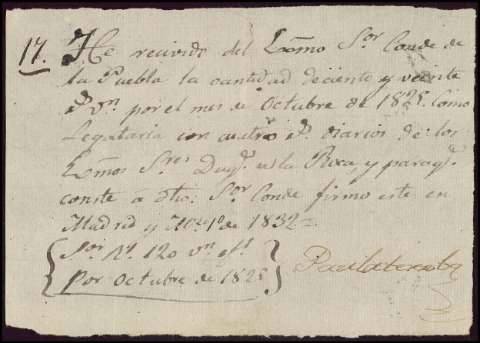 17. He recivido del Exmo Sor Conde de
la Puebla la cantidad de ciento y veinte
Rs vn por el mes de Octubre de 1825. como
Legataria con cuatro rs diarios de los
Exmos Sres Duqs de la Roca, y para qe
conste á dho Sor Conde firmo este en
Madrid y de 1832=
Son Rs 120 vn efs
Por Octubre de 1825